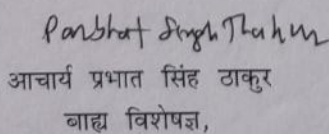 Parbhat Singh Thakur
आचार्य प्रभात सिंह ठाकुर
बाह्य विशेषज्ञ,